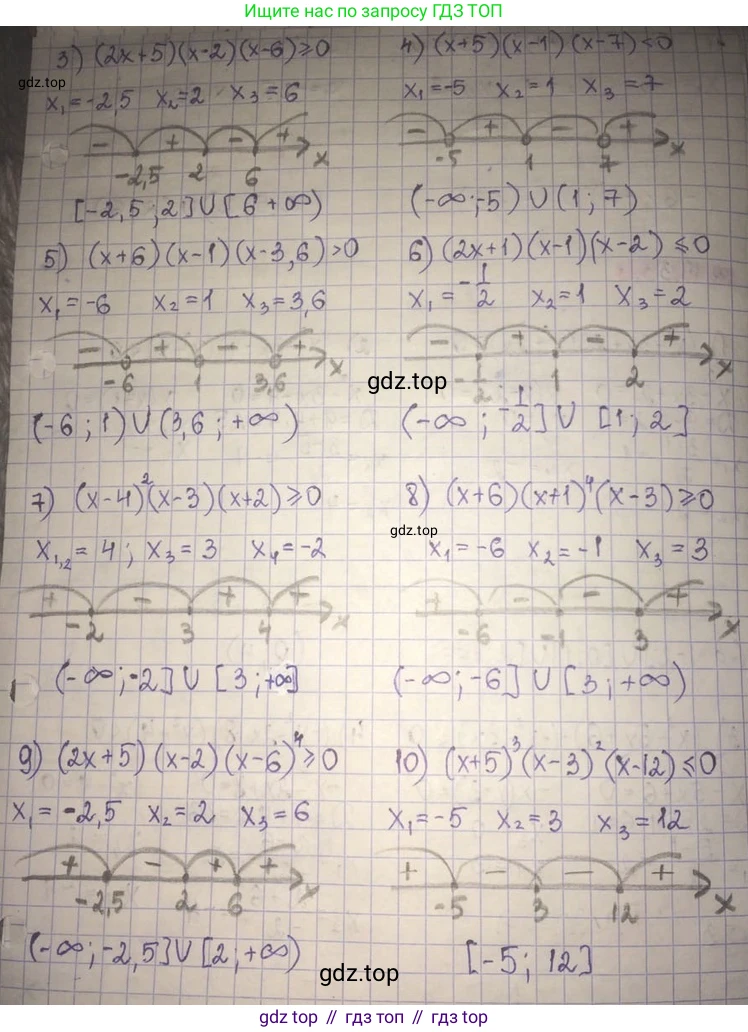 Ищите нас по запросу ГДЗ ТОП
3) (2x+5)(x-2)(x-6)≥0
x₁=-2,5 x₂=2 x₃=6
- + - +
-2,5 2 6 x
[-2,5;2]∪[6 +∞)
4) (x+5)(x-1)(x-7)<0
x₁=-5 x₂=1 x₃=7
- + - +
-5 1 7 x
(-∞;-5)∪(1;7)
5) (x+6)(x-1)(x-3,6)>0
x₁=-6 x₂=1 x₃=3,6
- + - +
-6 1 3,6 x
(-6;1)∪(3,6;+∞)
6) (2x+1)(x-1)(x-2)≤0
x₁=-1/2 x₂=1 x₃=2
- + - +
-1/2 1 2 x
(-∞;-1/2]∪[1;2]
7) (x-4)²(x-3)(x+2)≥0
x₁,₂=4; x₃=3 x₄=-2
+ - + +
-2 3 4 x
(-∞;-2]∪[3;+∞]
8) (x+6)(x+1)⁴(x-3)≥0
x₁=-6 x₂=-1 x₃=3
+ - - +
-6 -1 3 x
(-∞;-6]∪[3;+∞)
9) (2x+5)(x-2)(x-6)⁴≥0
x₁=-2,5 x₂=2 x₃=6
+ - + +
-2,5 2 6 x
(-∞;-2,5]∪[2;+∞)
10) (x+5)³(x-3)²(x-12)≤0
x₁=-5 x₂=3 x₃=12
+ - - +
-5 3 12 x
[-5;12]
gdz.top
gdz.top
gdz.top
gdz.top
gdz top // гдз топ // gdz.top